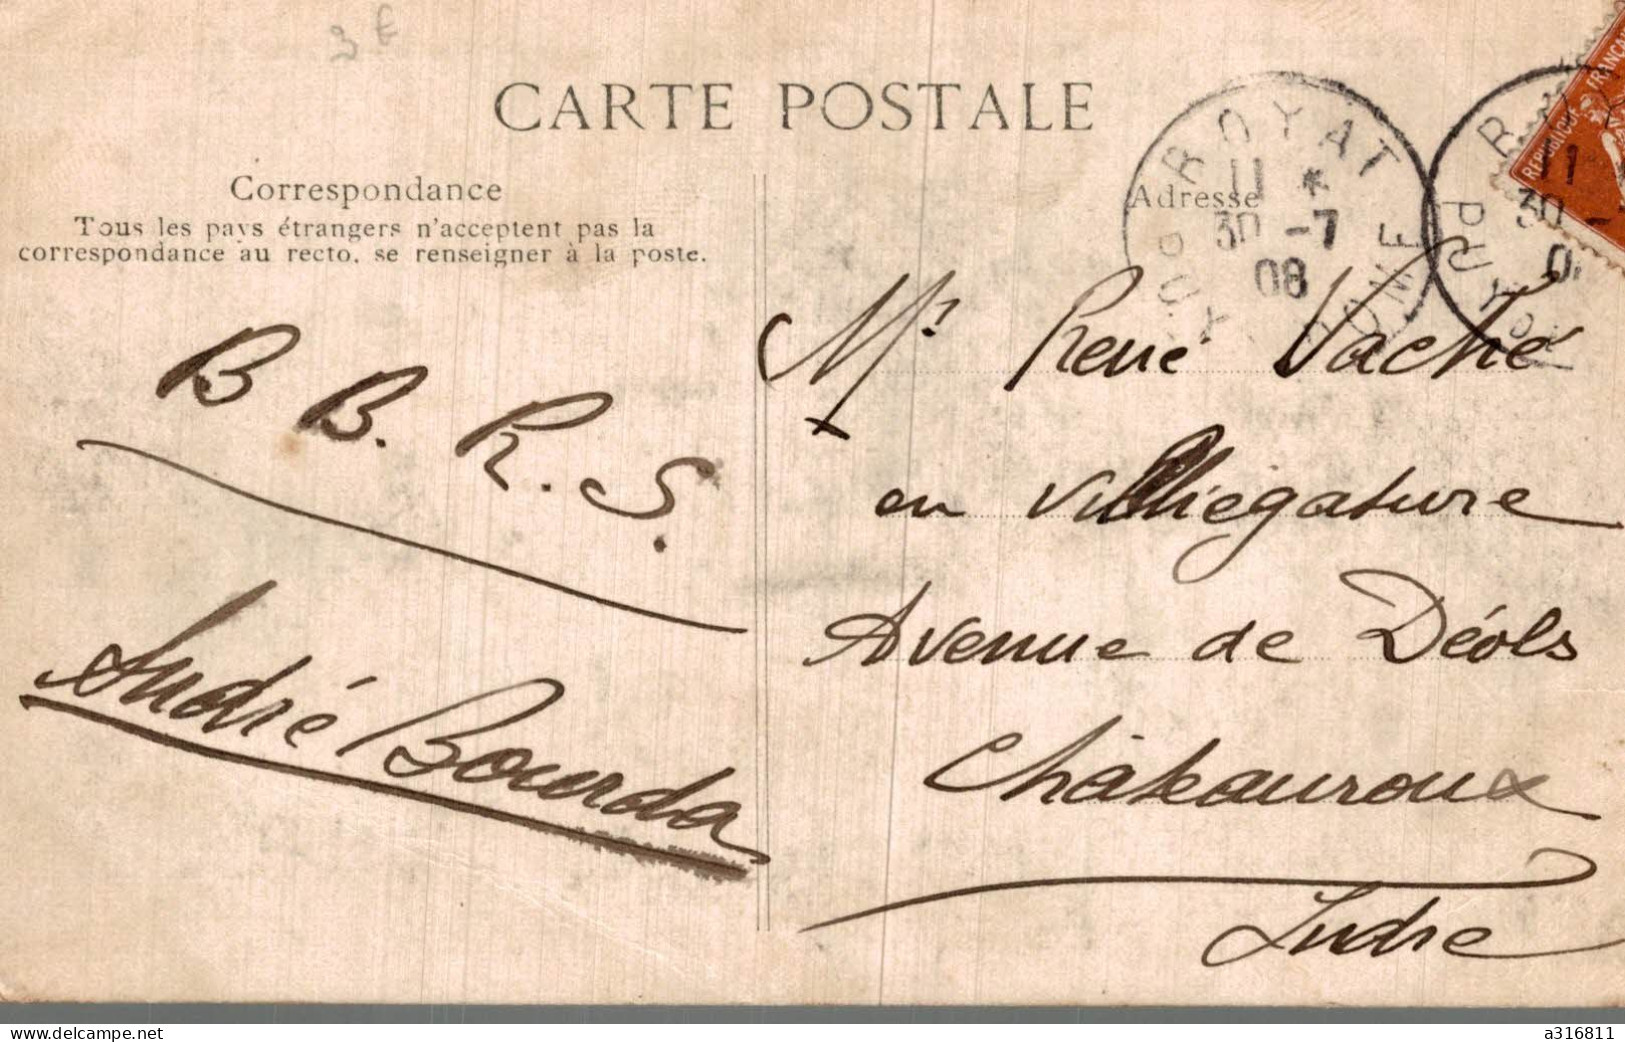 3 €
CARTE POSTALE
Correspondance
Tous les pays étrangers n'acceptent pas la
correspondance au recto, se renseigner à la poste.
B B. R. S.
André Bourda
Adresse
ROYAT
11 *
30 -7
08
PUY DOME
REPUBLIQUE FRANÇAI
RO
11
30 -
0
PUY
Mr René Vaché
en Villiegature
Avenue de Déols
Châteauroux
Indre
www.delcampe.net
a316811